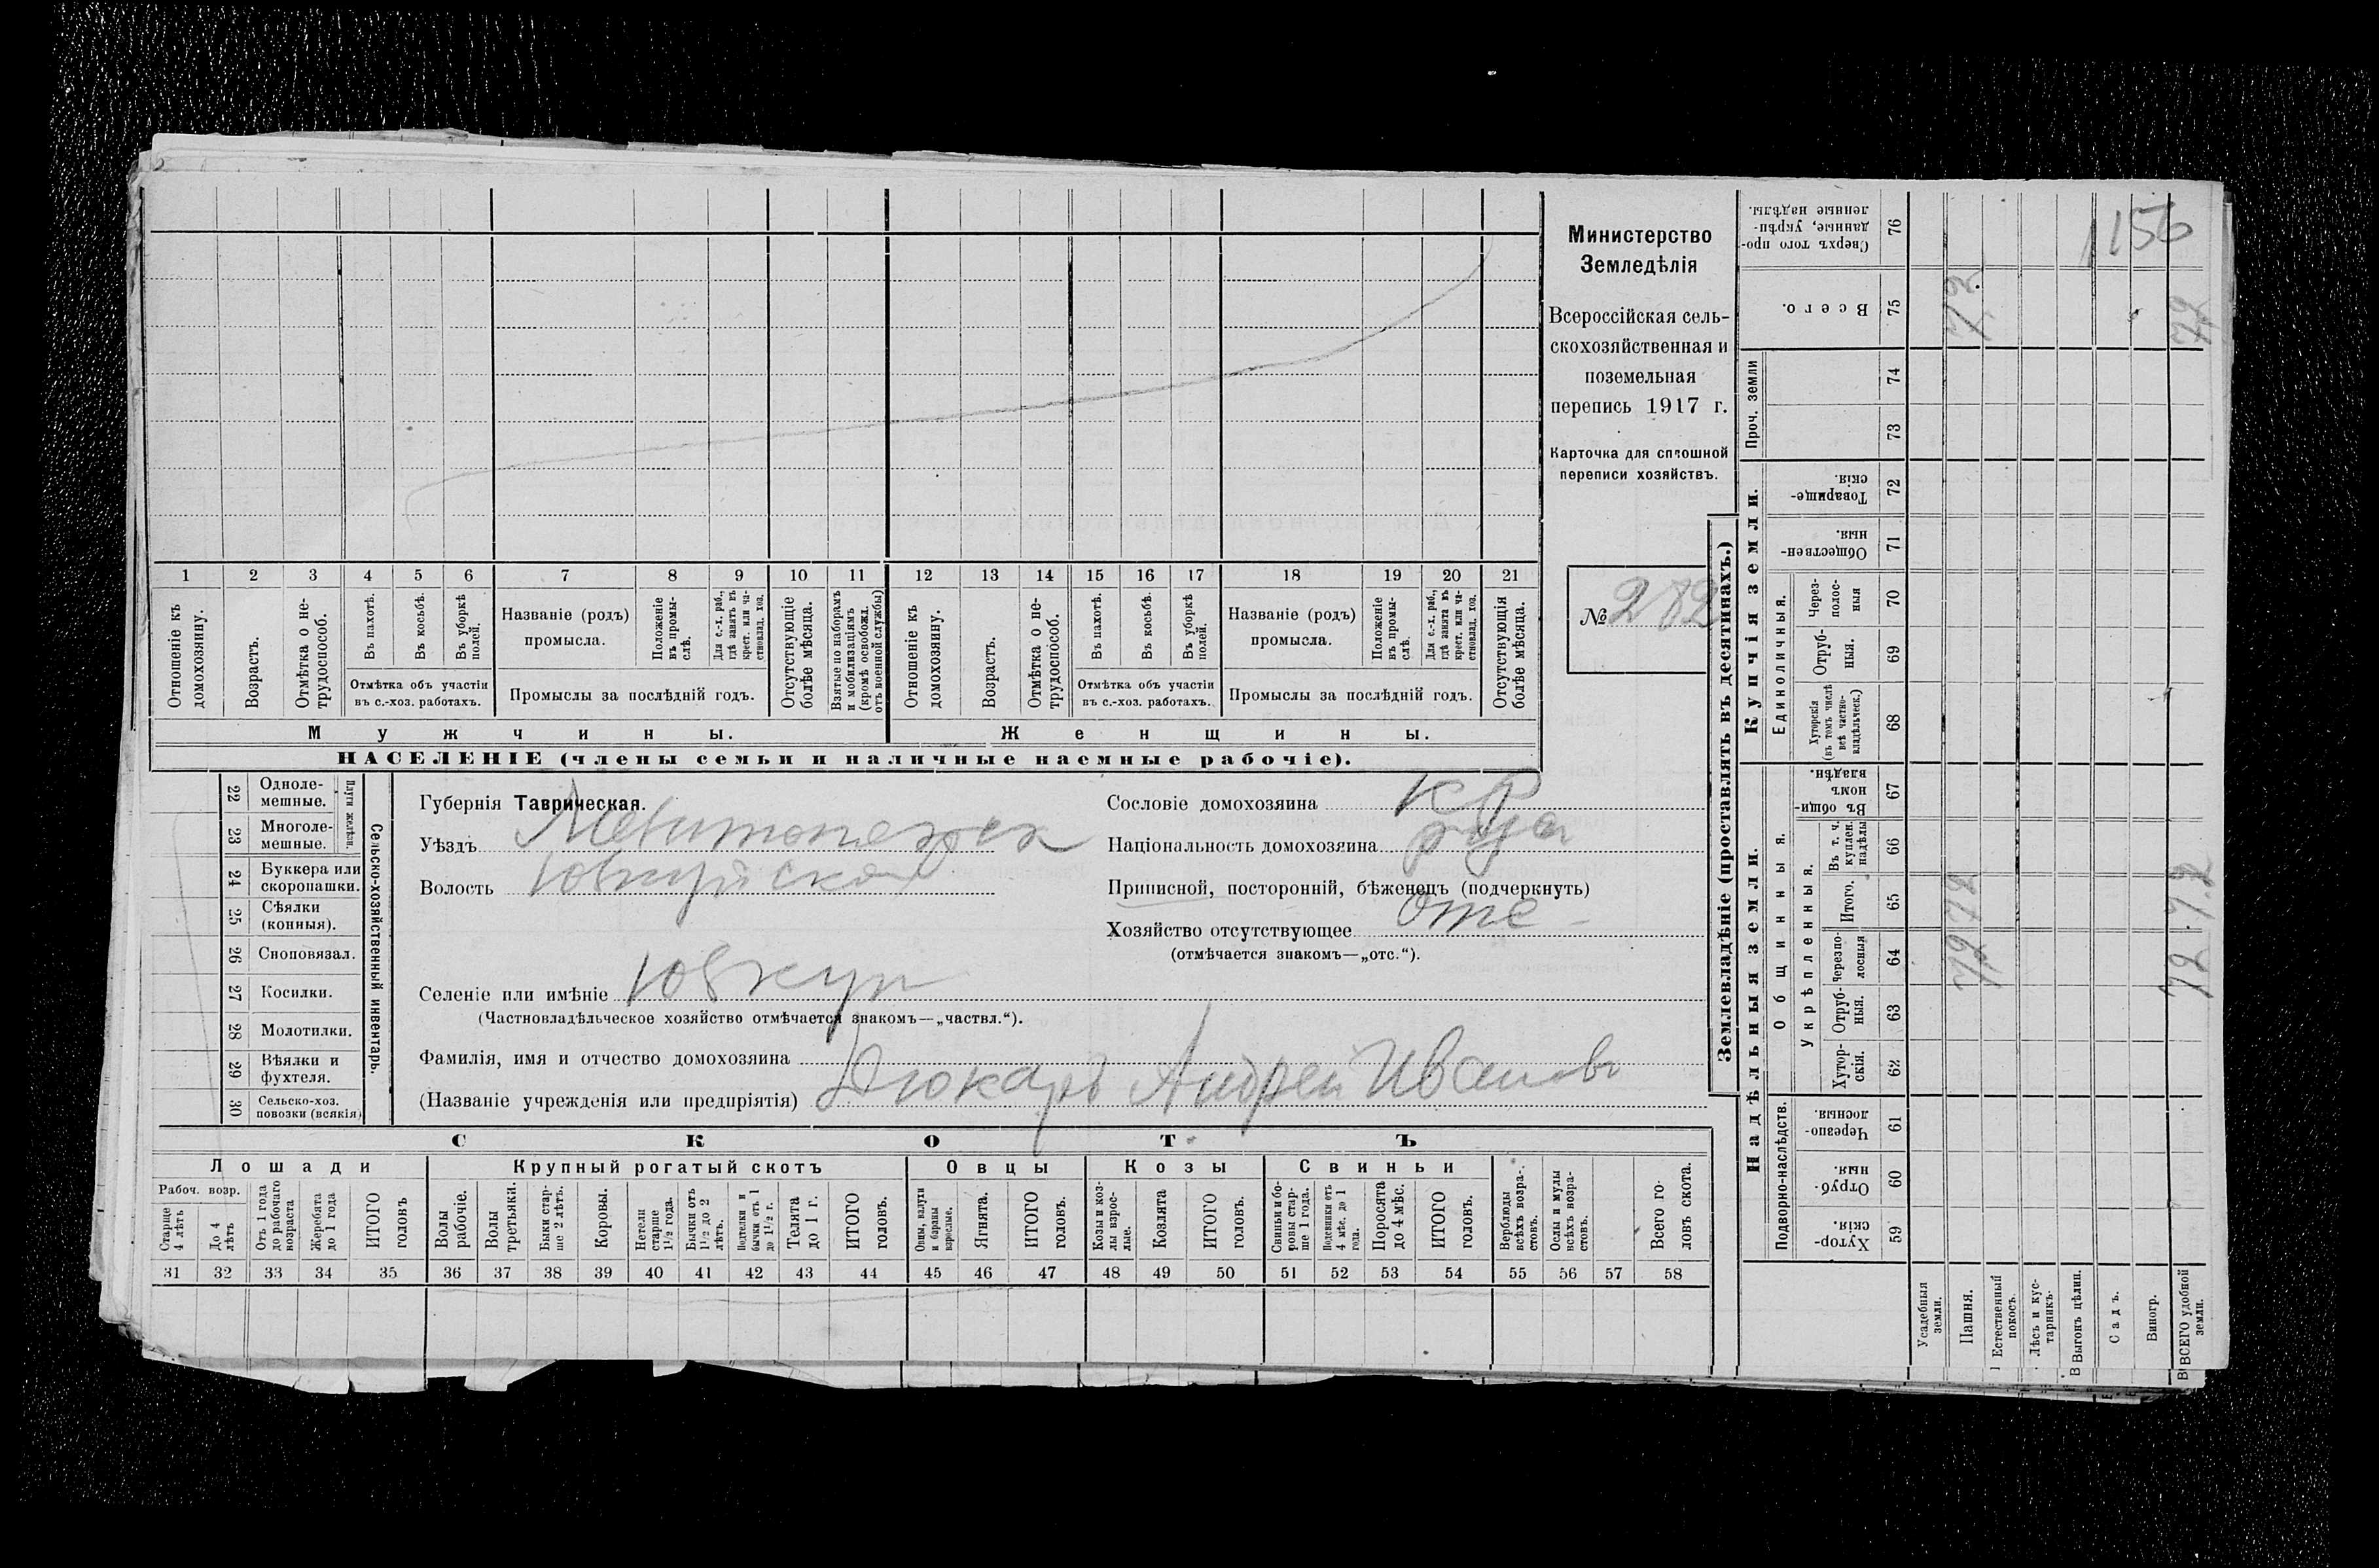 1 2 3 4 5 6 7 8 9 10 11 12 13 14 15 16 17 18 19 20 21
Отношеніе къ домохозяину.
Возрастъ.
Отмѣтка о не-
трудоспособ.
Въ пахотѣ.
Въ косьбѣ.
Въ уборкѣ полей.
Отмѣтка объ участіи
въ с.-хоз. работахъ.
Названіе (родъ)
промысла.
Положеніе
въ промы-
слѣ.
Для с.-х. раб.,
гдѣ занятъ въ
крест. или ча-
стновлад. хоз.
Промыслы за послѣдній годъ.
Отсутствующіе
болѣе мѣсяца.
Взятые по наборамъ
и мобилизаціямъ
(кромѣ освобожд.
отъ военной службы)
Отношеніе къ
домохозяину.
Возрастъ.
Отмѣтка о не-
трудоспособ.
Въ пахотѣ.
Въ косьбѣ.
Въ уборкѣ
полей.
Отмѣтка объ участіи
въ с.-хоз. работахъ.
Названіе (родъ)
промысла.
Положеніе
въ промы-
слѣ.
Для с.-х. раб.,
гдѣ занята въ
крест. или ча-
стновлад. хоз.
Промыслы за послѣдній годъ.
Отсутствующія
болѣе мѣсяца.
Мужчины.
Женщины.
НАСЕЛЕНІЕ (члены семьи и наличные наемные рабочіе).
Министерство
Земледѣлія
Всероссійская сель-
скохозяйственная и
поземельная
перепись 1917 г.
Карточка для сплошной
переписи хозяйствъ.
№ 282
22 Одноле-
мешные.
23 Многоле-
мешные.
Плуги желѣзн.
24 Буккера или
скоропашки.
25 Сѣялки
(конныя).
26 Сноповязал.
27 Косилки.
28 Молотилки.
29 Вѣялки и
фухтеля.
30 Сельско-хоз.
повозки (всякія)
Сельско-хозяйственный инвентарь.
Губернія Таврическая.
Уѣздъ Мелитопольск
Волость Юзкуйская
Селеніе или имѣніе Юзкуи
(Частновладѣльческое хозяйство отмѣчается знакомъ—„частвл.“).
Фамилія, имя и отчество домохозяина
(Названіе учрежденія или предпріятія) Дюкарь Андрей Ивановъ
Сословіе домохозяина кр
Національность домохозяина
Приписной, посторонній, бѣженецъ (подчеркнуть)
Хозяйство отсутствующее отс
(отмѣчается знакомъ—„отс.“).
СКОТЪ
Лошади
Рабоч. возр.
Старше
4 лѣтъ
До 4
лѣтъ
Отъ 1 года
до рабочаго
возраста
Жеребята
до 1 года
ИТОГО
головъ
Крупный рогатый скотъ
Волы
рабочіе.
Волы
третьяки.
Быки стар-
ше 2 лѣтъ.
Коровы.
Нетели
старше
1½ года.
Бычки отъ
1½ до 2
лѣтъ.
Подтелки и
бычки отъ 1
до 1½ г.
Телята
до 1 г.
ИТОГО
головъ.
Овцы
Овцы, валухи
и бараны
взрослые.
Ягнята.
ИТОГО
головъ.
Козы
Козы и коз-
лы взрос-
лые.
Козлята
ИТОГО
головъ.
Свиньи
Свиньи и бо-
ровы стар-
ше 1 года.
Подсвинки отъ
4 мѣс. до 1
года.
Поросята
до 4 мѣс.
ИТОГО
головъ.
Верблюды
всѣхъ возра-
стовъ.
Ослы и мулы
всѣхъ возра-
стовъ.
Всего го-
ловъ скота.
31 32 33 34 35 36 37 38 39 40 41 42 43 44 45 46 47 48 49 50 51 52 53 54 55 56 57 58
Землевладѣніе (проставлять въ десятинахъ.)
Надѣльныя земли.
Подворно-наслѣдств.
Хутор-
скія.
59
Отруб-
ныя.
60
Черезпо-
лосныя.
61
Общинныя.
Укрѣпленныя.
Хутор-
скія.
62
Отруб-
ныя.
63
Черезпо-
лосныя
64
Итого.
65
Въ т. ч.
куплен.
надѣлы
66
Въ общин-
номъ
владѣн.
67
Купчія земли.
Единоличныя.
Хуторскія
(въ томъ числѣ
всѣ частно-
владѣльческ.)
68
Отруб-
ныя.
69
Через-
полос-
ныя
70
Обществен-
ныя.
71
Товарище-
скія.
72
Проч. земли
73
74
Всего.
75
Сверхъ того про-
данные, укрѣп-
ленные надѣлы.
76
Усадебныя
земли.
Пашня.
7,2 7,2 7,2
Естественный
покосъ.
Лѣсъ и кус-
тарникъ.
Выгонъ цѣлин.
Садъ.
Виногр.
ВСЕГО удобной
земли.
7,2 7,2 7,2
1156